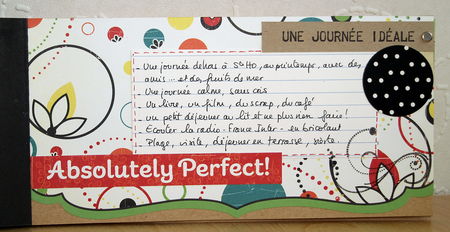 UNE JOURNÉE IDÉALE
- Une journée dehors à St HO, au printemps, avec des
amis... et des fruits de mer
- Une journée calme, sans cris
- Un livre, un film, du scrap, du café
- Un petit déjeuner au lit et ne plus rien faire!
- Écouter la radio - France Inter - en bricolant
- Plage, visite, déjeuner en terrasse, sieste.
Absolutely Perfect!